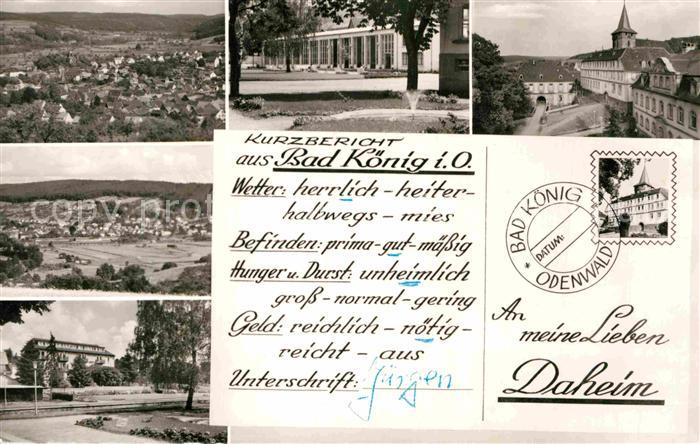 KURZBERICHT
aus Bad König i.O.
Wetter: herrlich - heiter -
halbwegs - mies
Befinden: prima - gut - mäßig
Hunger u. Durst: unheimlich
groß - normal - gering
Geld: reichlich - nötig -
reicht - aus
Unterschrift: Jürgen
BAD KÖNIG
DATUM:
* ODENWALD
An
meine Lieben
Daheim